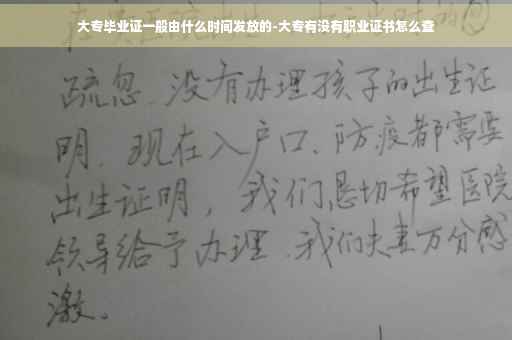 大专毕业证一般由什么时间发放的-大专有没有职业证书怎么查
疏忽、没有办理孩子的出生证
明、现在入户口、防疫都需要
出生证明，我们恳切希望医院
领导给予办理、我们夫妻万分感
激。